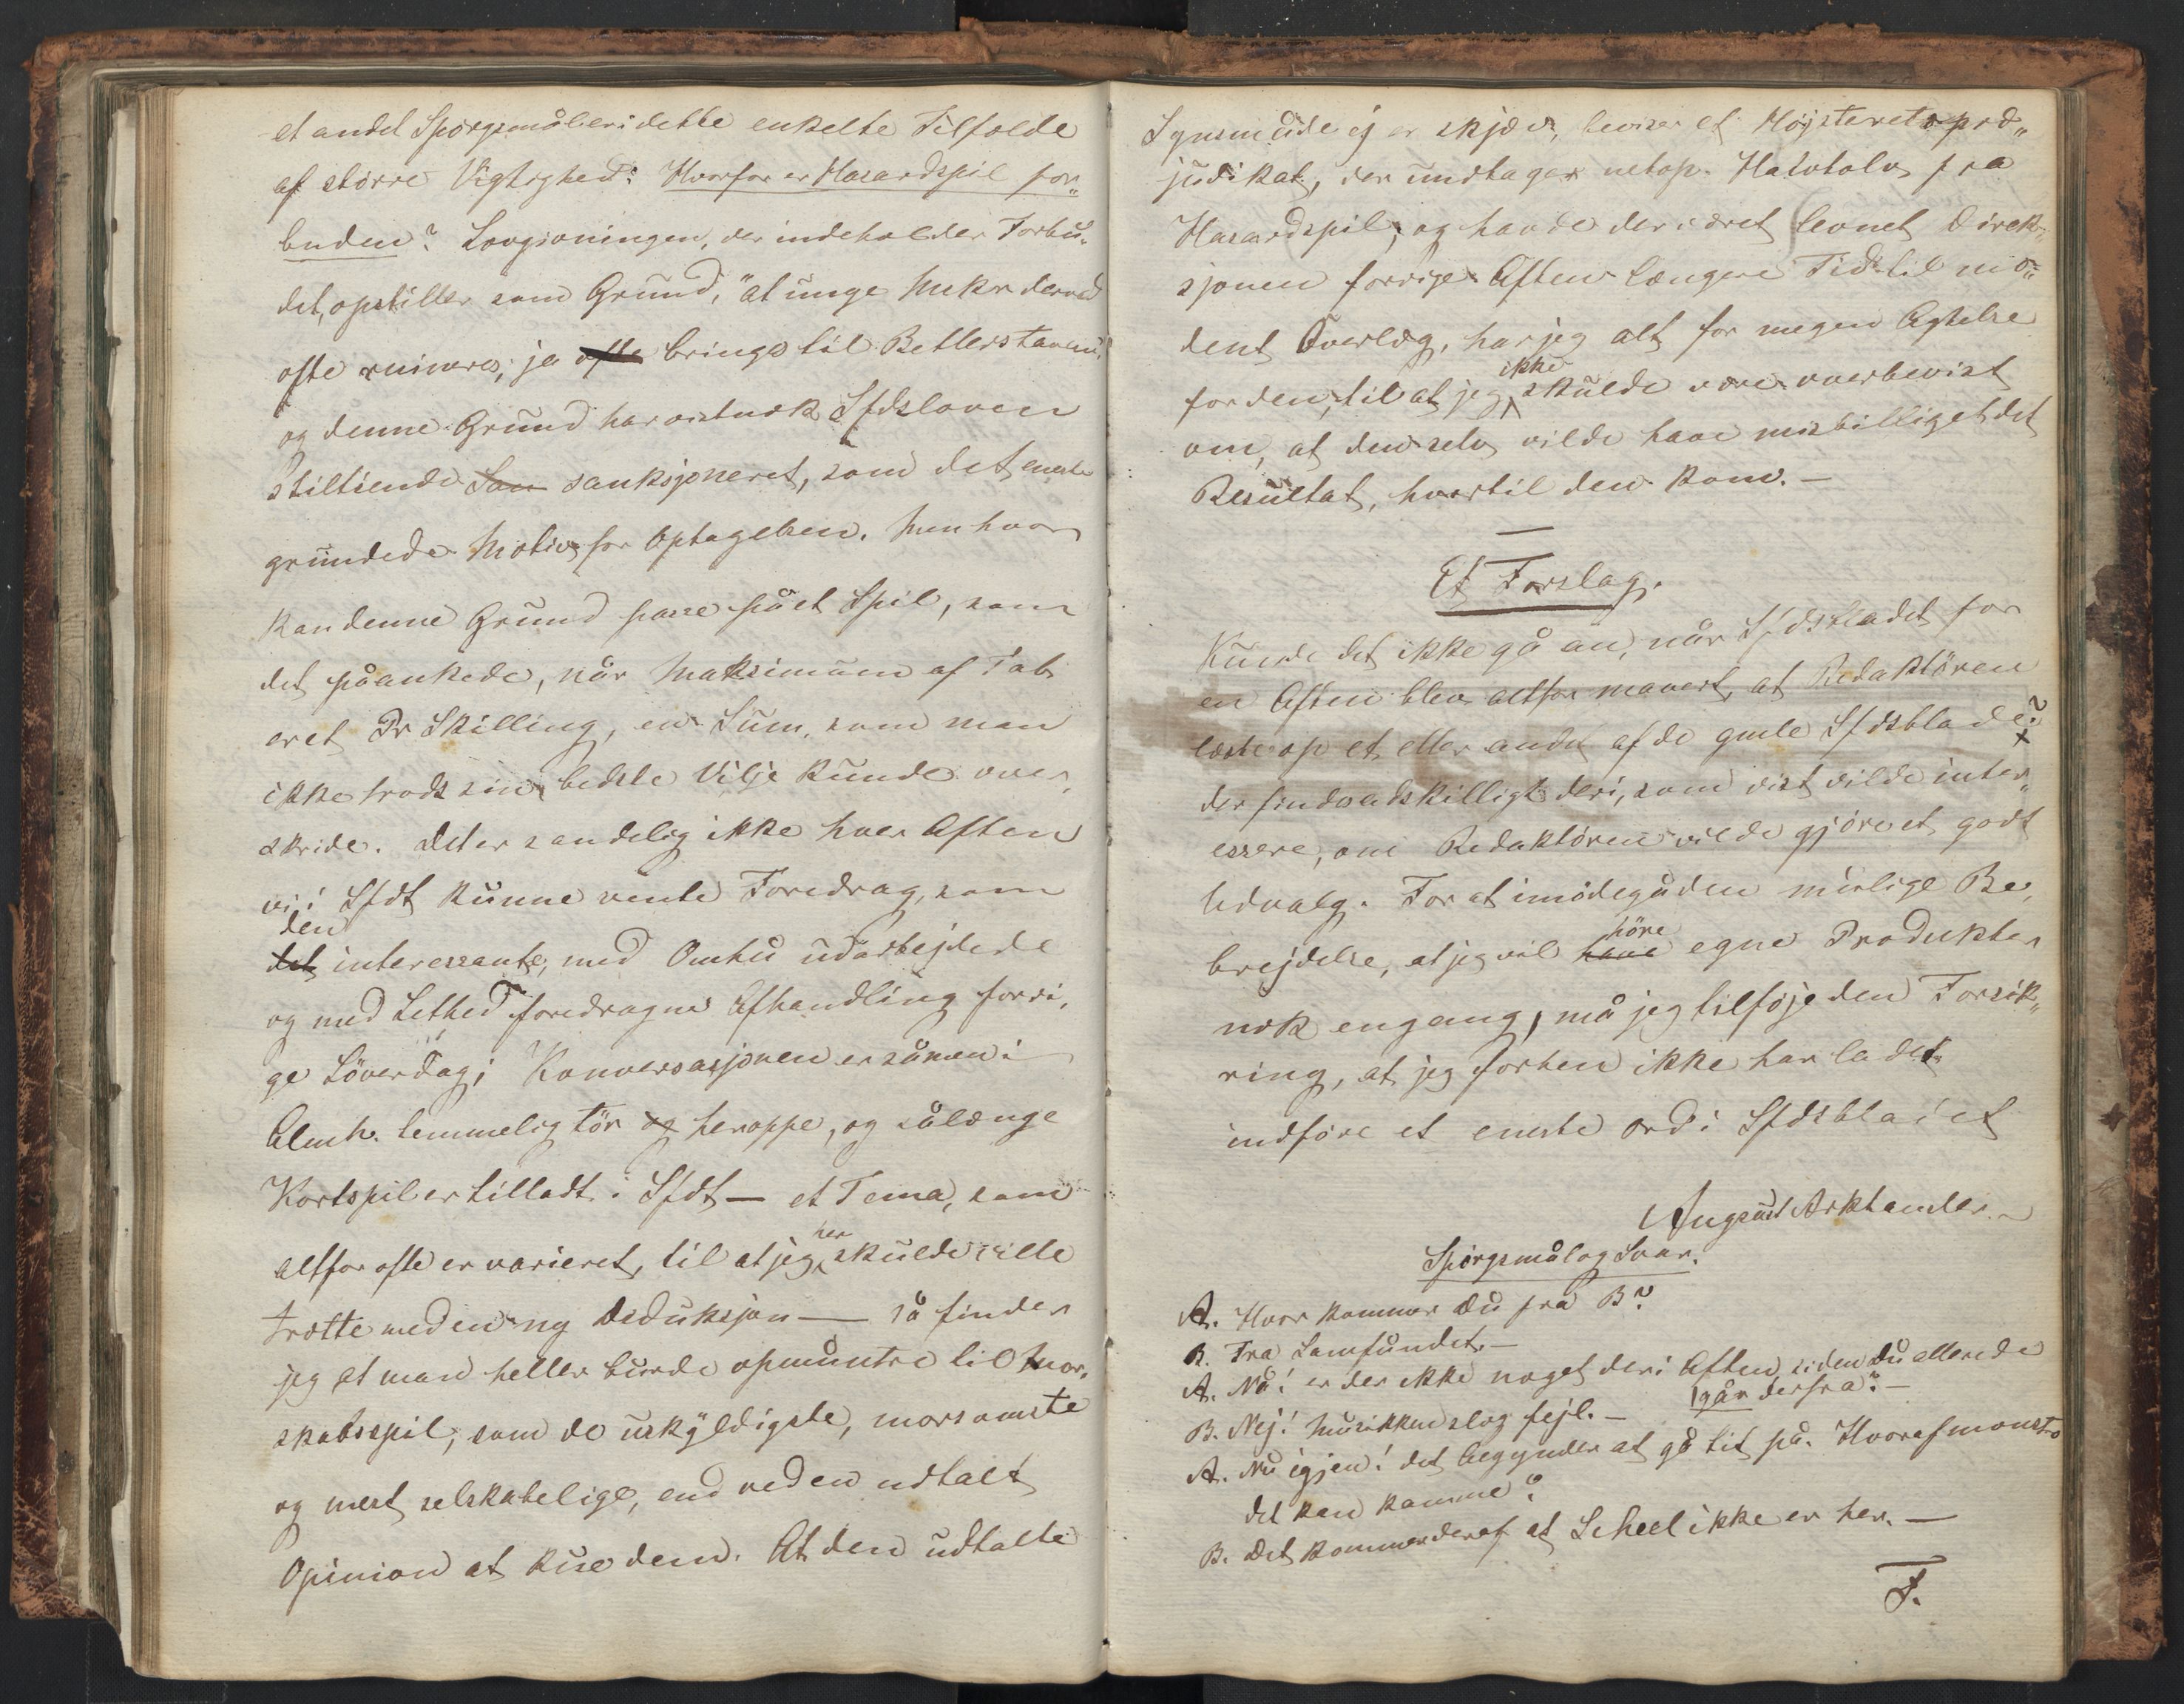 et andet Spørgsmål er i dette enkelte Tilfælde
af større Vigtighed: Hvorfor er Hasardspil for„
buden? Lovgivningen, der indeholder Forbu„
det, opstiller som Grund, "at unge Msker derved
ofte ruineres, ja ofte bringes til Betlerstaven"
og denne Grund har vistnok Sfdsloven
stiltiende San sanksjoneret, som det eneste
grundede Motiv for Optagelsen. Men hvor
kan denne Grund passe på et Spil, som
det påankede, når Maksimum af Tab
er et Pr Skilling, en Sum, som man
ikke trods sin bedste Vilje kunde over„
skride. Det er sandelig ikke hver Aften
vi i Sfdt kunne vente Foredrag, som
den
det interessante, med Omhu udarbejdede
og med Lethed foredragne Afhandling forri„
ge Löverdag; Konversasjonen er såmen i
Almh. temmelig tör og heroppe, og sålænge
Kortspil er tilladt i Sfdt — et Tema, som
her
altfor ofte er varieret, til at jeg skulde ville
trætte med en ny Deduksjon — så finder
jeg at man heller burde opmuntre til Mor„
skabsspil, som de uskyldigste, morsomste
og mest selskabelige, end ved en udtalt
Opinion at kue dem. At den udtalte
Synsmåde ej er skjæv, beviser et Højsteretspræ„
judikat, der undtager netop Halvtolv fra
Hasardspil; og havde der været levnet Direk„
sjonen forrige Aften længere Tid til mo„
dent Overlæg, har jeg alt for megen Agtelse
ikke
for den, til at jeg skulde være overbevist
om, at den selv vilde have misbilliget det
Resultat, hvortil den kom. —
—
Et Forslag.
Kunde det ikke gå an, når Sfdsbladet for
en Aften blev altfor mavert, at Redaktören
læste op et eller andet af de gmle Sfdsblade?
der findes adskilligt deri, som vist vilde inter„
essere, om Redaktören vilde gjöre et godt
Udvalg. For at imödegå den mulige Be„
höre
brejdelse, at jeg vil have egne Produkter
nok engang, må jeg tilföje den Forsik„
ring, at jeg forhen ikke har ladet
indföre et eneste Ord i Sfdsbladet
August Arktander.
Spörgsmål og Svar.
A. Hvor kommer Du fra B?
B. Fra Samfundet. —
A. Nå! er der ikke noget der i Aften, siden Du allerede
går derfra? —
B. Nej! Musikken slog fejl. —
A. Nu igjen! det begynder at gå tit på. Hvoraf monstro
det kan komme?
B. Det kommer deraf at Scheel ikke er her. —
F.